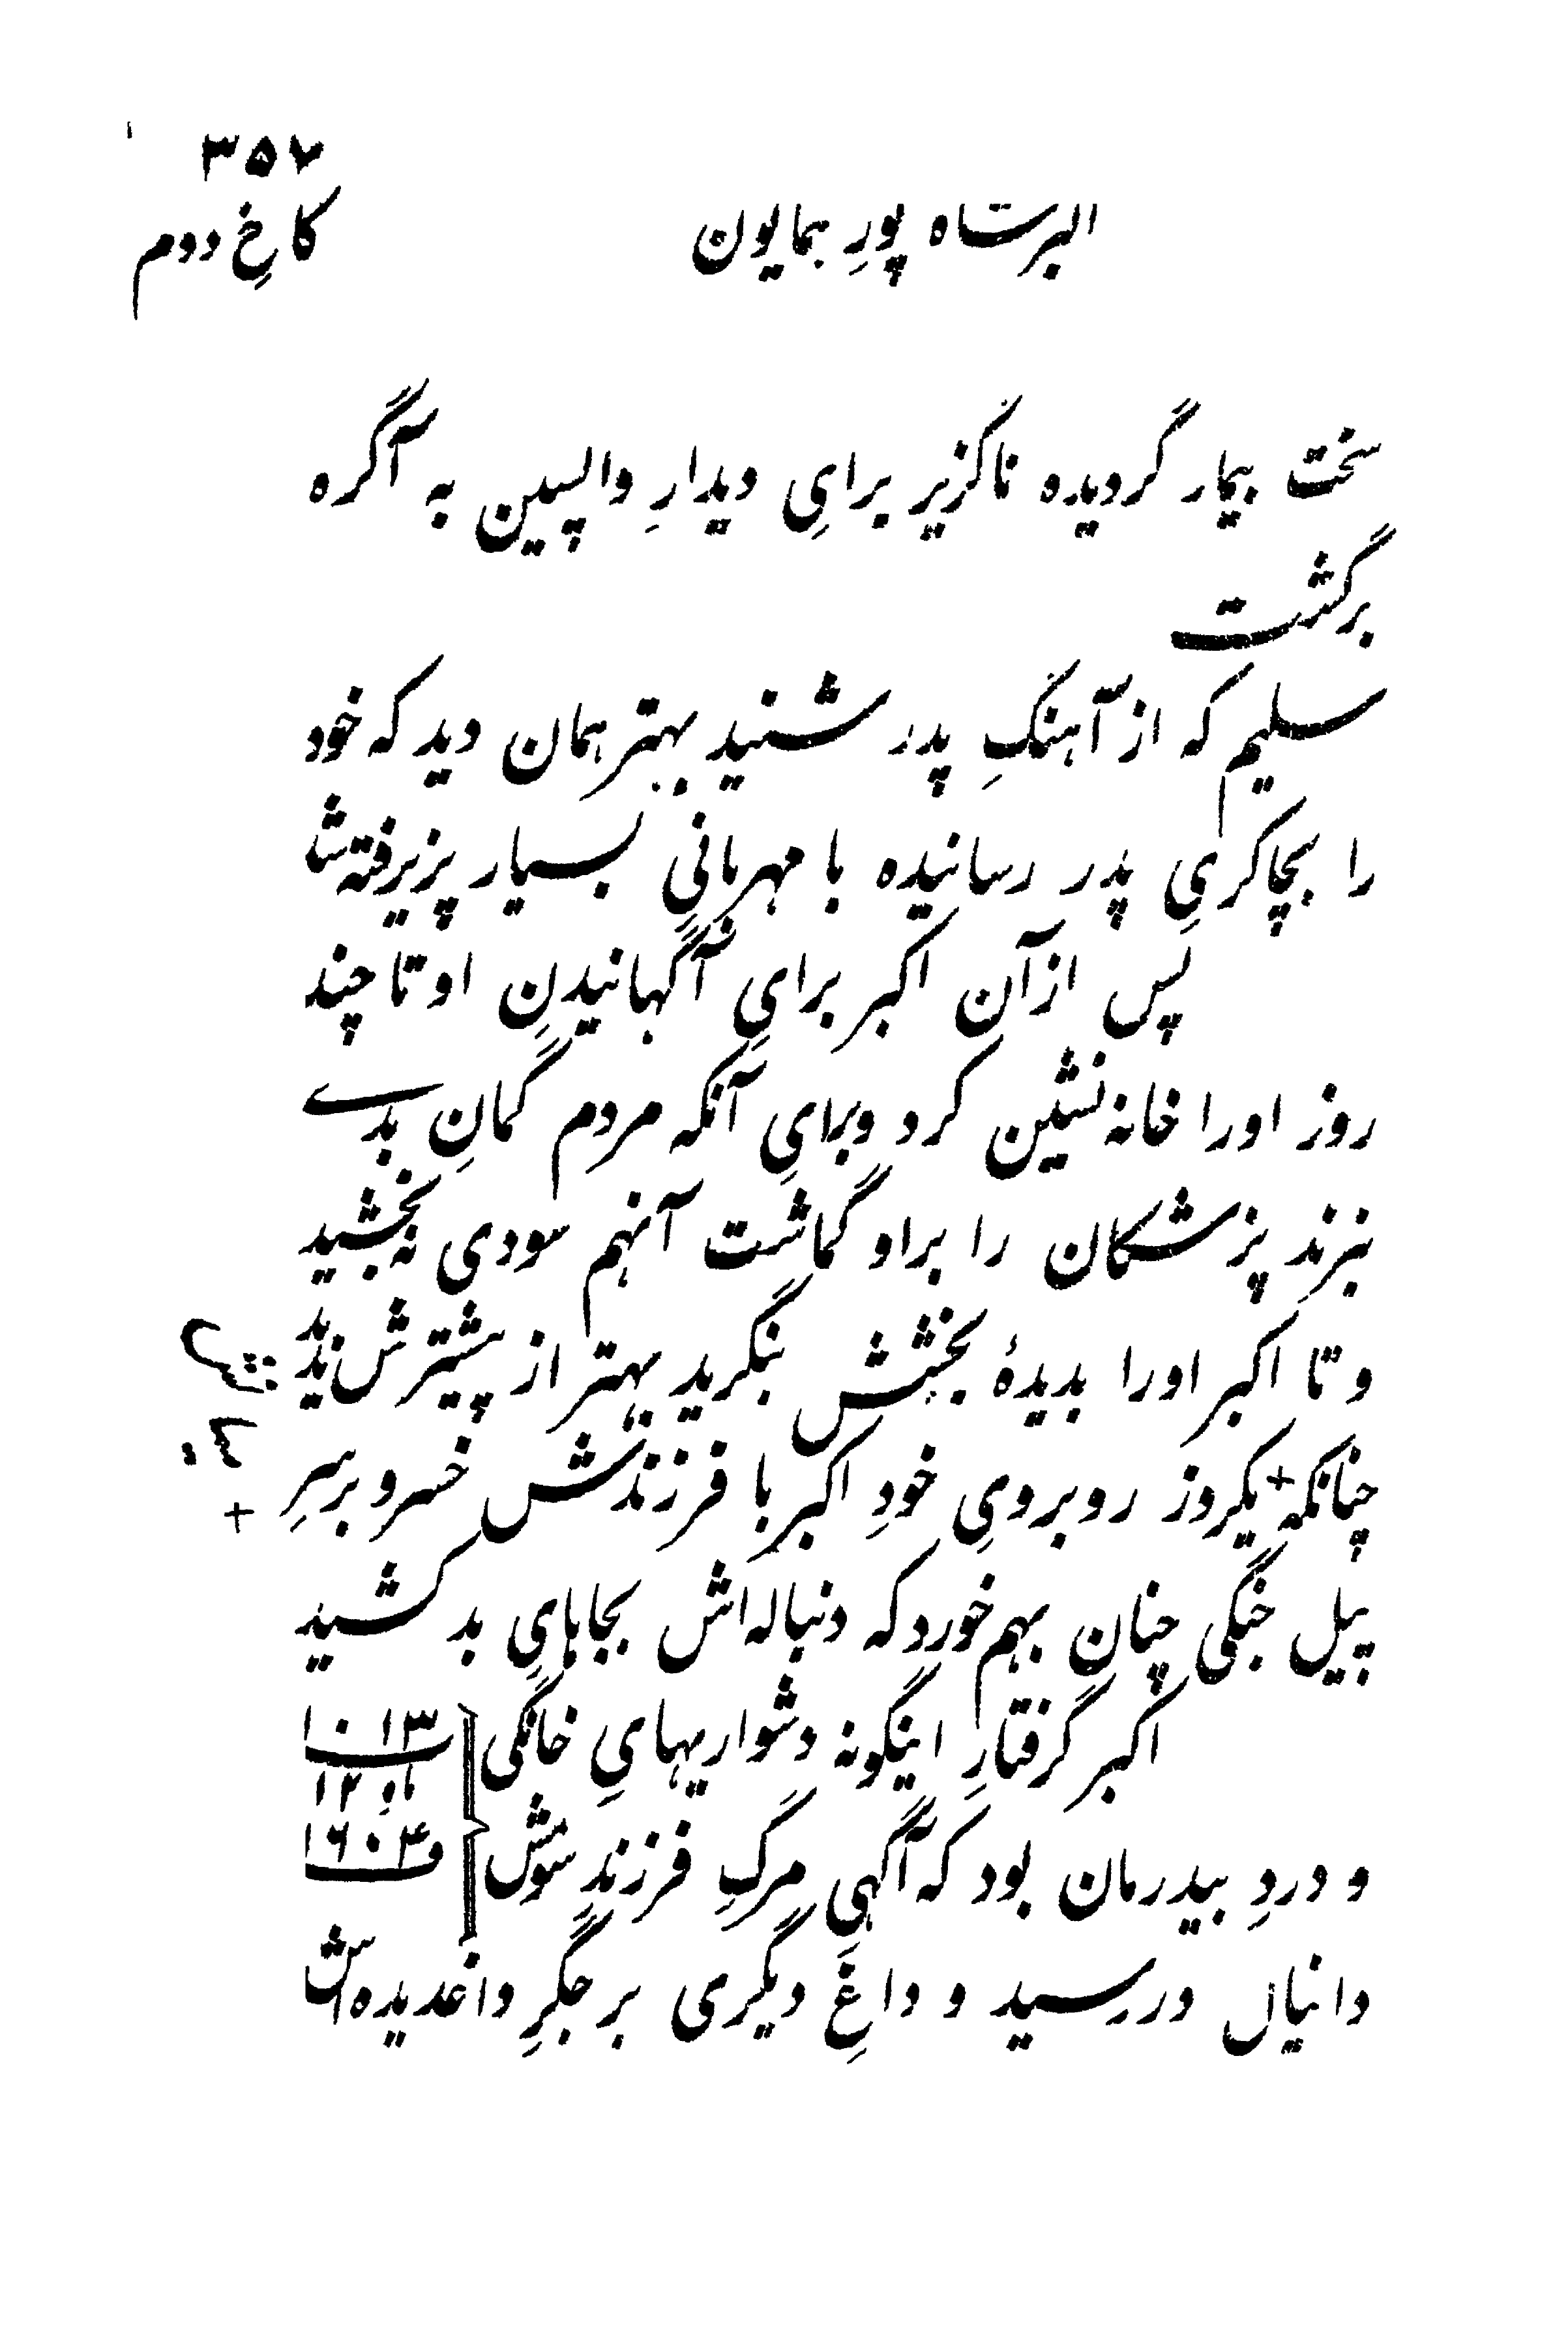 ۳۵۲
اکبر شاه پورِ همایون
کاخِ دوم
سخت بیمار گردیده ناگزیر برایِ دیدارِ واپسین به آگره
برگشت
سلیم که از آهنگِ پدر شنید بهتر همان دید که خود
را بچاکریِ پدر رسانیده با مهربانیِ بسیار پزیرفته شد
پس از آن اکبر برایِ آگهانیدنِ او تا چند
روز اورا خانه نشین کرد و برایِ آنکه مردم گمانِ بدے
نبرند پزشکان را بر او گماشت آنهم سودی نه بخشید
و تا اکبر اورا بدیدۀ بخشش بنگرید بهتر از پیشترش ندید
چنانکه + یکروز روبرویِ خودِ اکبر با فرزندش خسرو برسرِ
+
پیل جنگی چنان بهم خورد که دنباله اش بجاهایِ بد کشید
اکبر گرفتارِ اینگونه دشواریهایِ خانگی
۱۰۱۳
ماه ۱۲
و دردِ بیدرمان بود که آگهیِ مرگِ فرزندِ سومش
۱۶۰۴
دانیال در رسید و داغِ دیگری بر جگرِ داغدیده اش